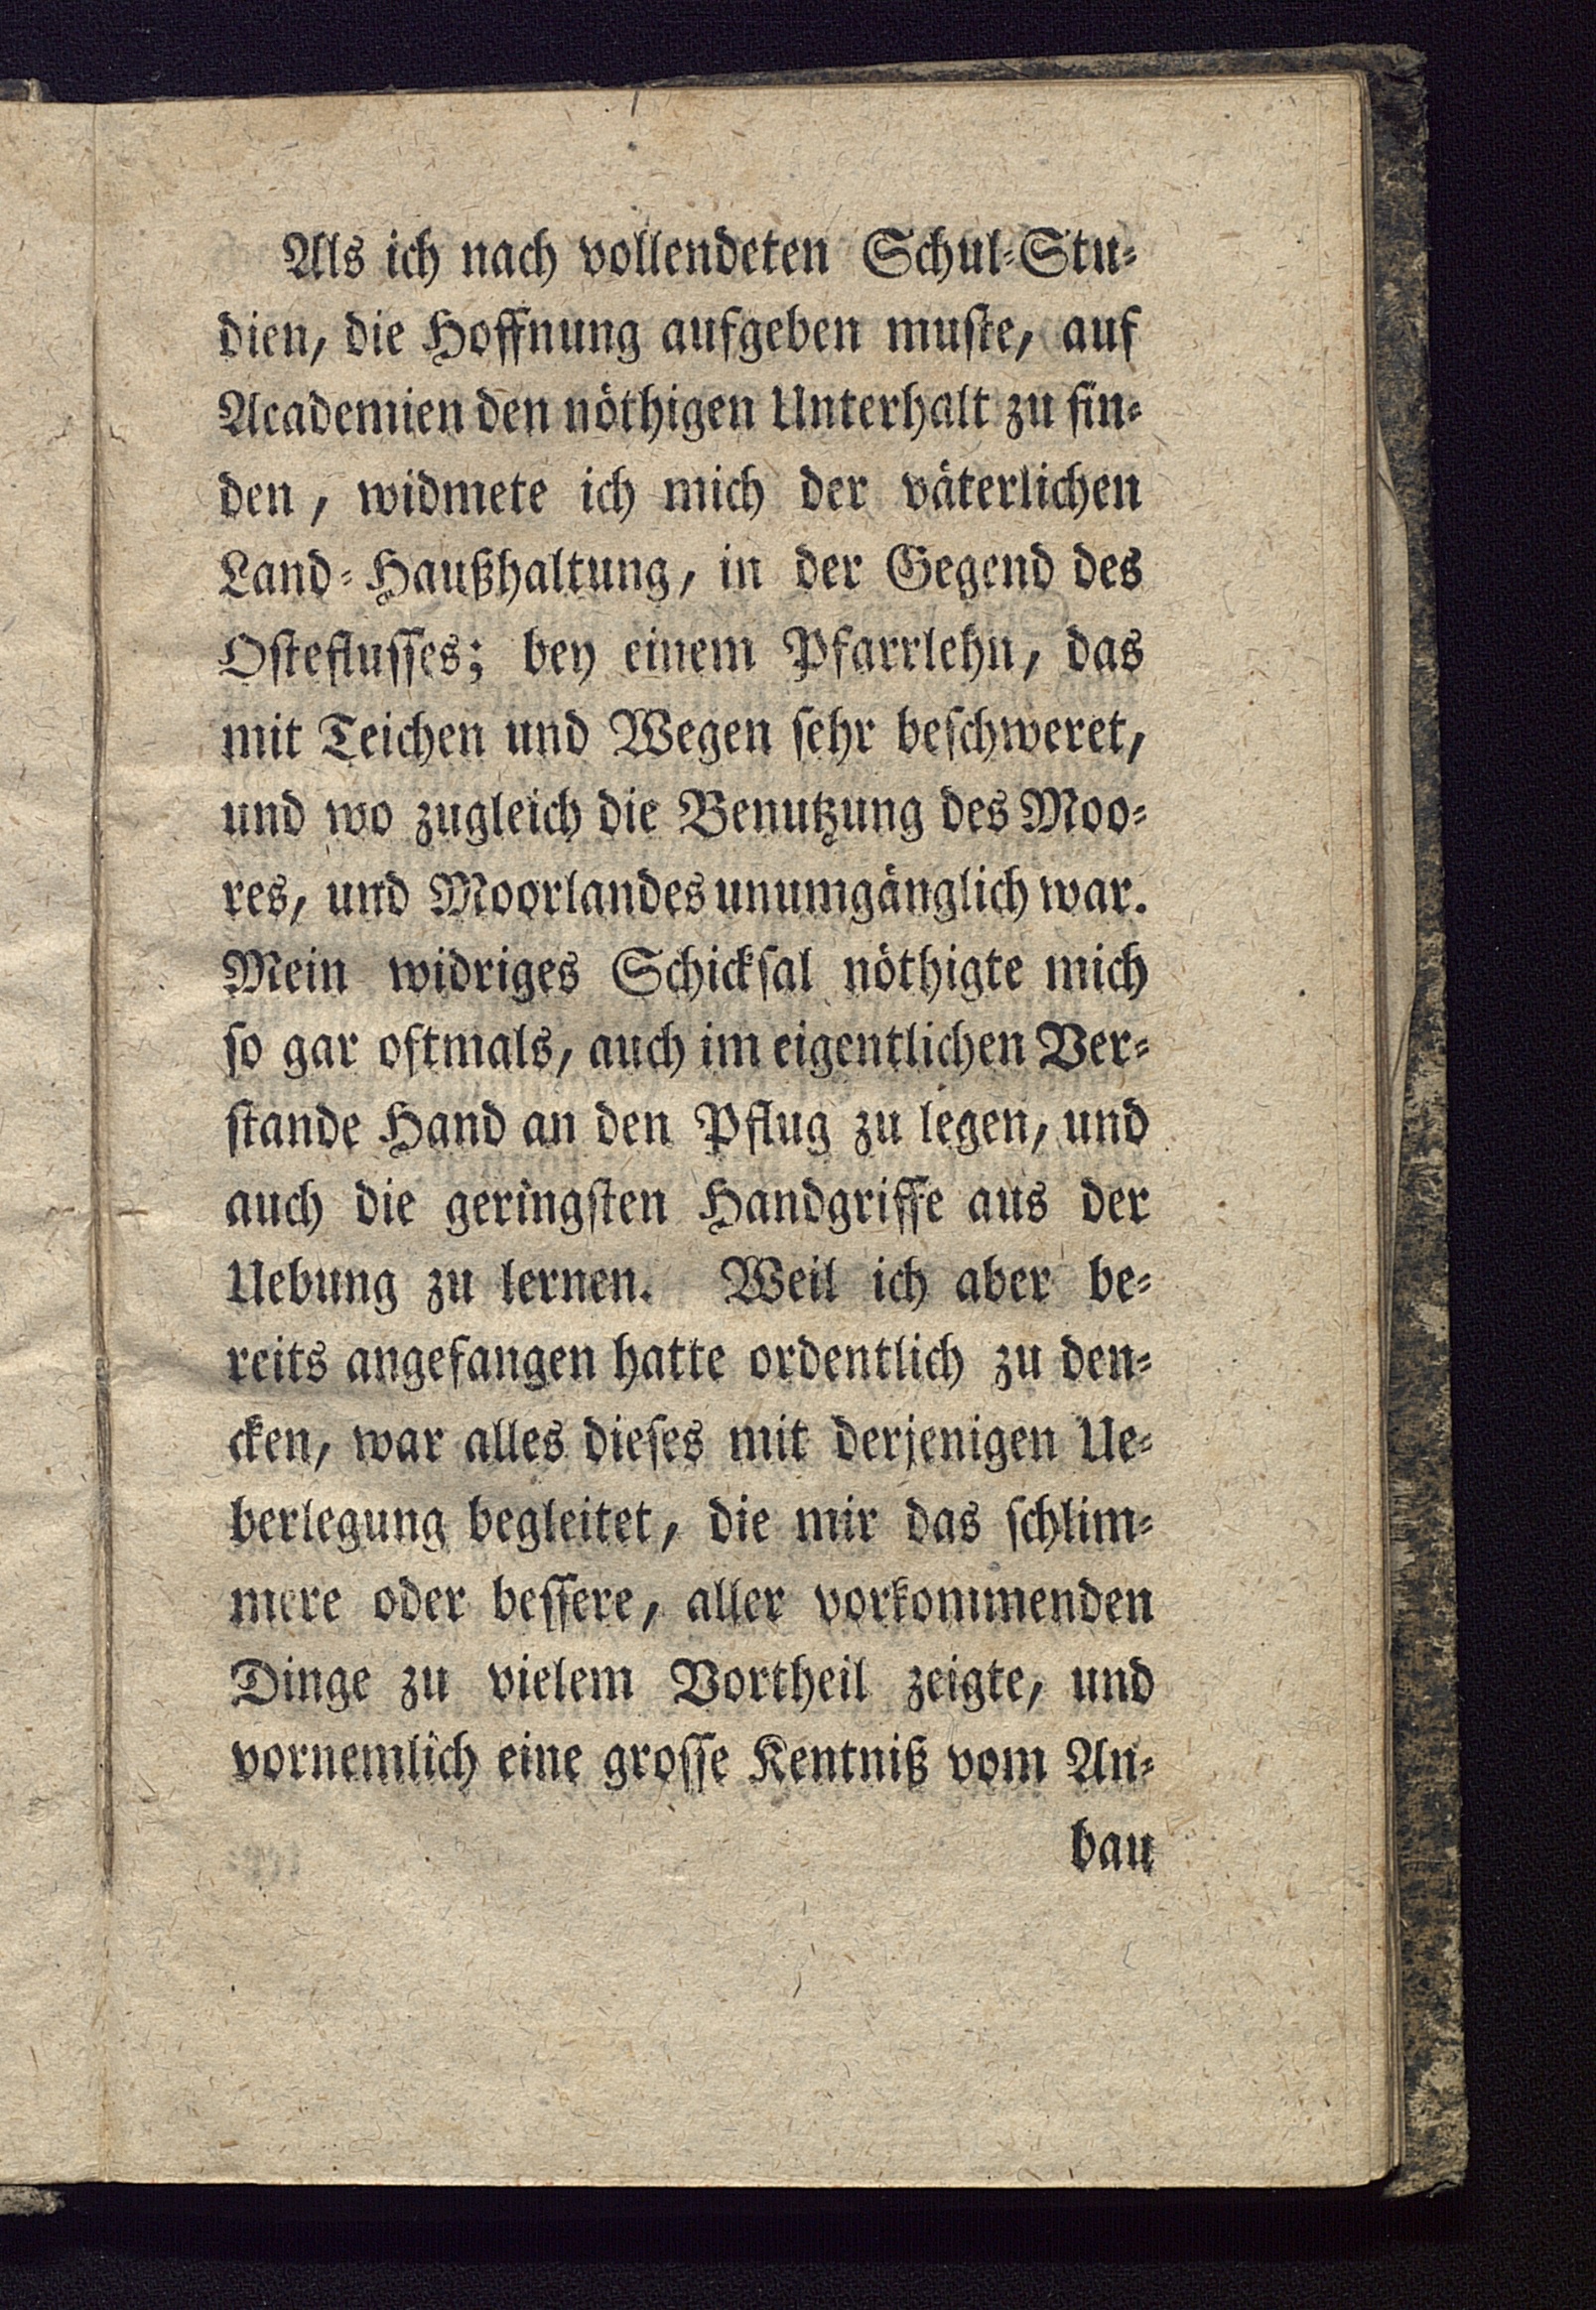 Als ich nach vollendeten Schul-Stu-
dien, die Hoffnung aufgeben muſte, auf
Academien den nöthigen Unterhalt zu fin-
den, widmete ich mich der väterlichen
Land-Haußhaltung, in der Gegend des
Oſtefluſſes; bey einem Pfarrlehn, das
mit Teichen und Wegen ſehr beſchweret,
und wo zugleich die Benutzung des Moo-
res, und Moorlandes unumgänglich war.
Mein widriges Schickſal nöthigte mich
ſo gar oftmals, auch im eigentlichen Ver-
ſtande Hand an den Pflug zu legen, und
auch die geringſten Handgriffe aus der
Uebung zu lernen. Weil ich aber be-
reits angefangen hatte ordentlich zu den-
cken, war alles dieſes mit derjenigen Ue-
berlegung begleitet, die mir das ſchlim-
mere oder beſſere, aller vorkommenden
Dinge zu vielem Vortheil zeigte, und
vornemlich eine groſſe Kentniß vom An-
bau